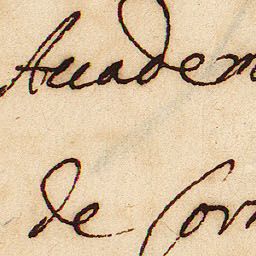 Auadem
de Cor